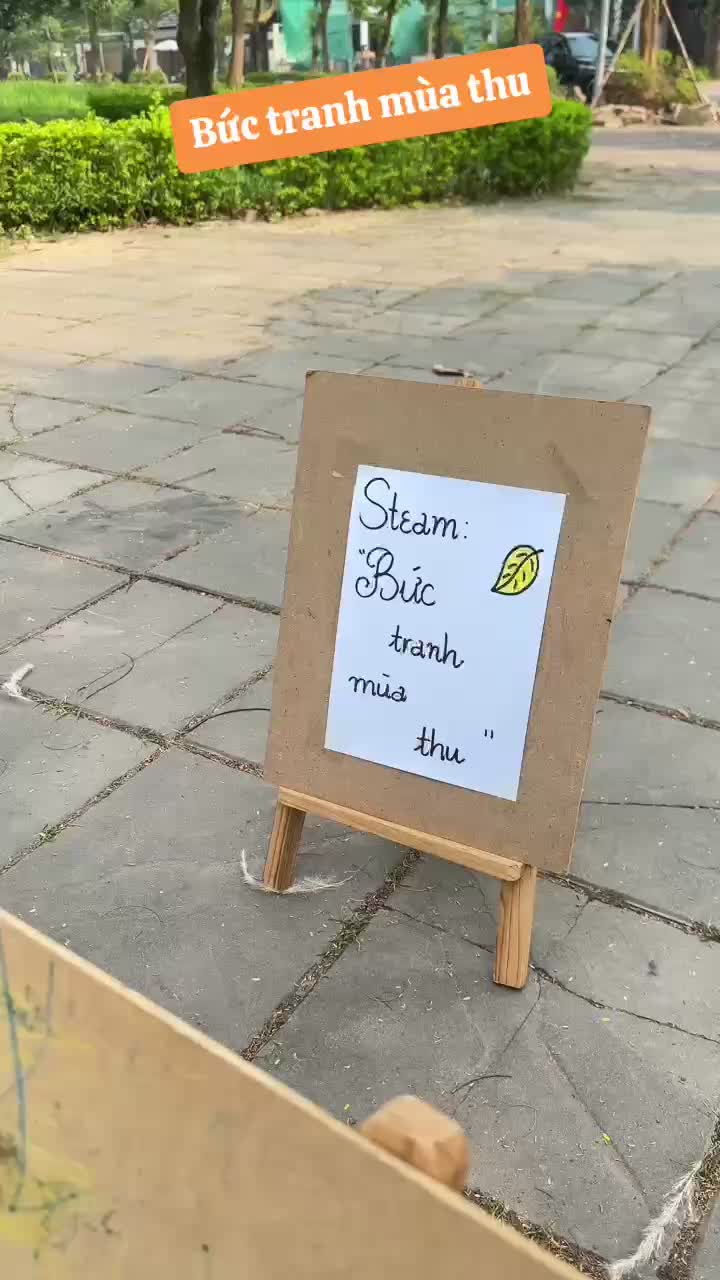 Bức tranh mùa thu
Steam:
"Bức
tranh
mùa
thu"